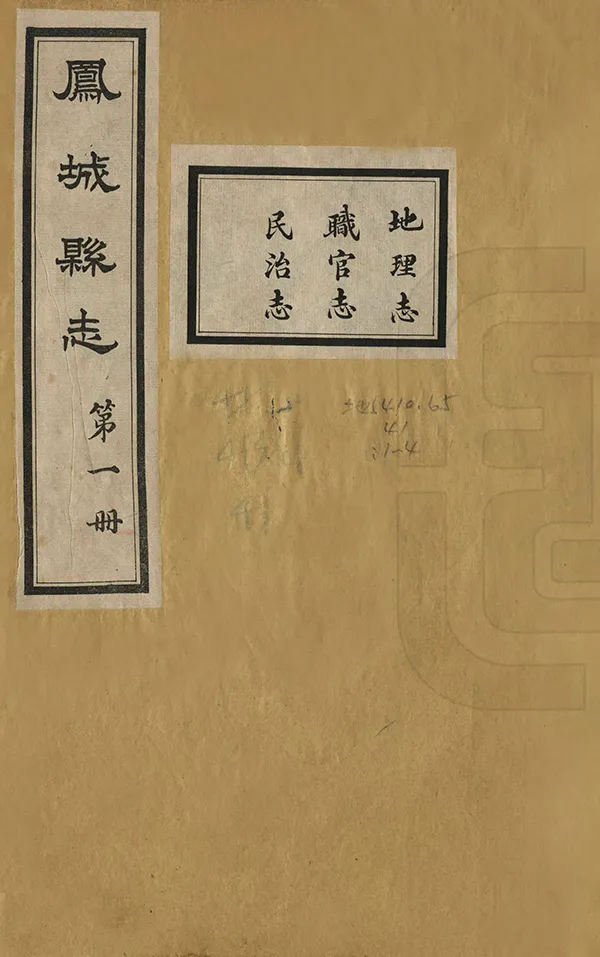 鳳城縣志 第一冊
地理志
職官志
民治志
5410.65
41
:1-4